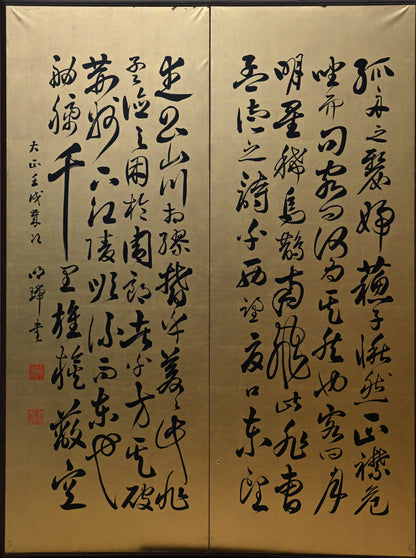 孤舟之嫠婦蘇子愀然正襟危
坐而問客曰何為其然也客曰月
明星稀烏鵲南飛此非曹
孟德之詩乎西望夏口東望
武昌山川相繆鬱乎蒼々此非
孟德之困於周郎者乎方其破
荊州下江陵順流而東也
舳艫千里旌旗蔽空
大正壬戌
書